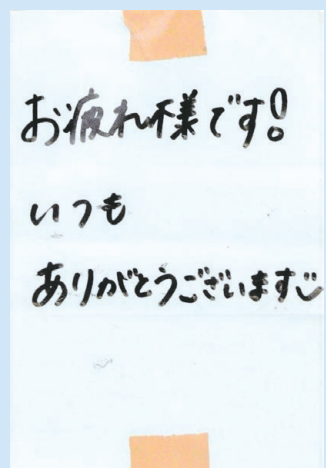 お疲れ様です!
いつも
ありがとうございます